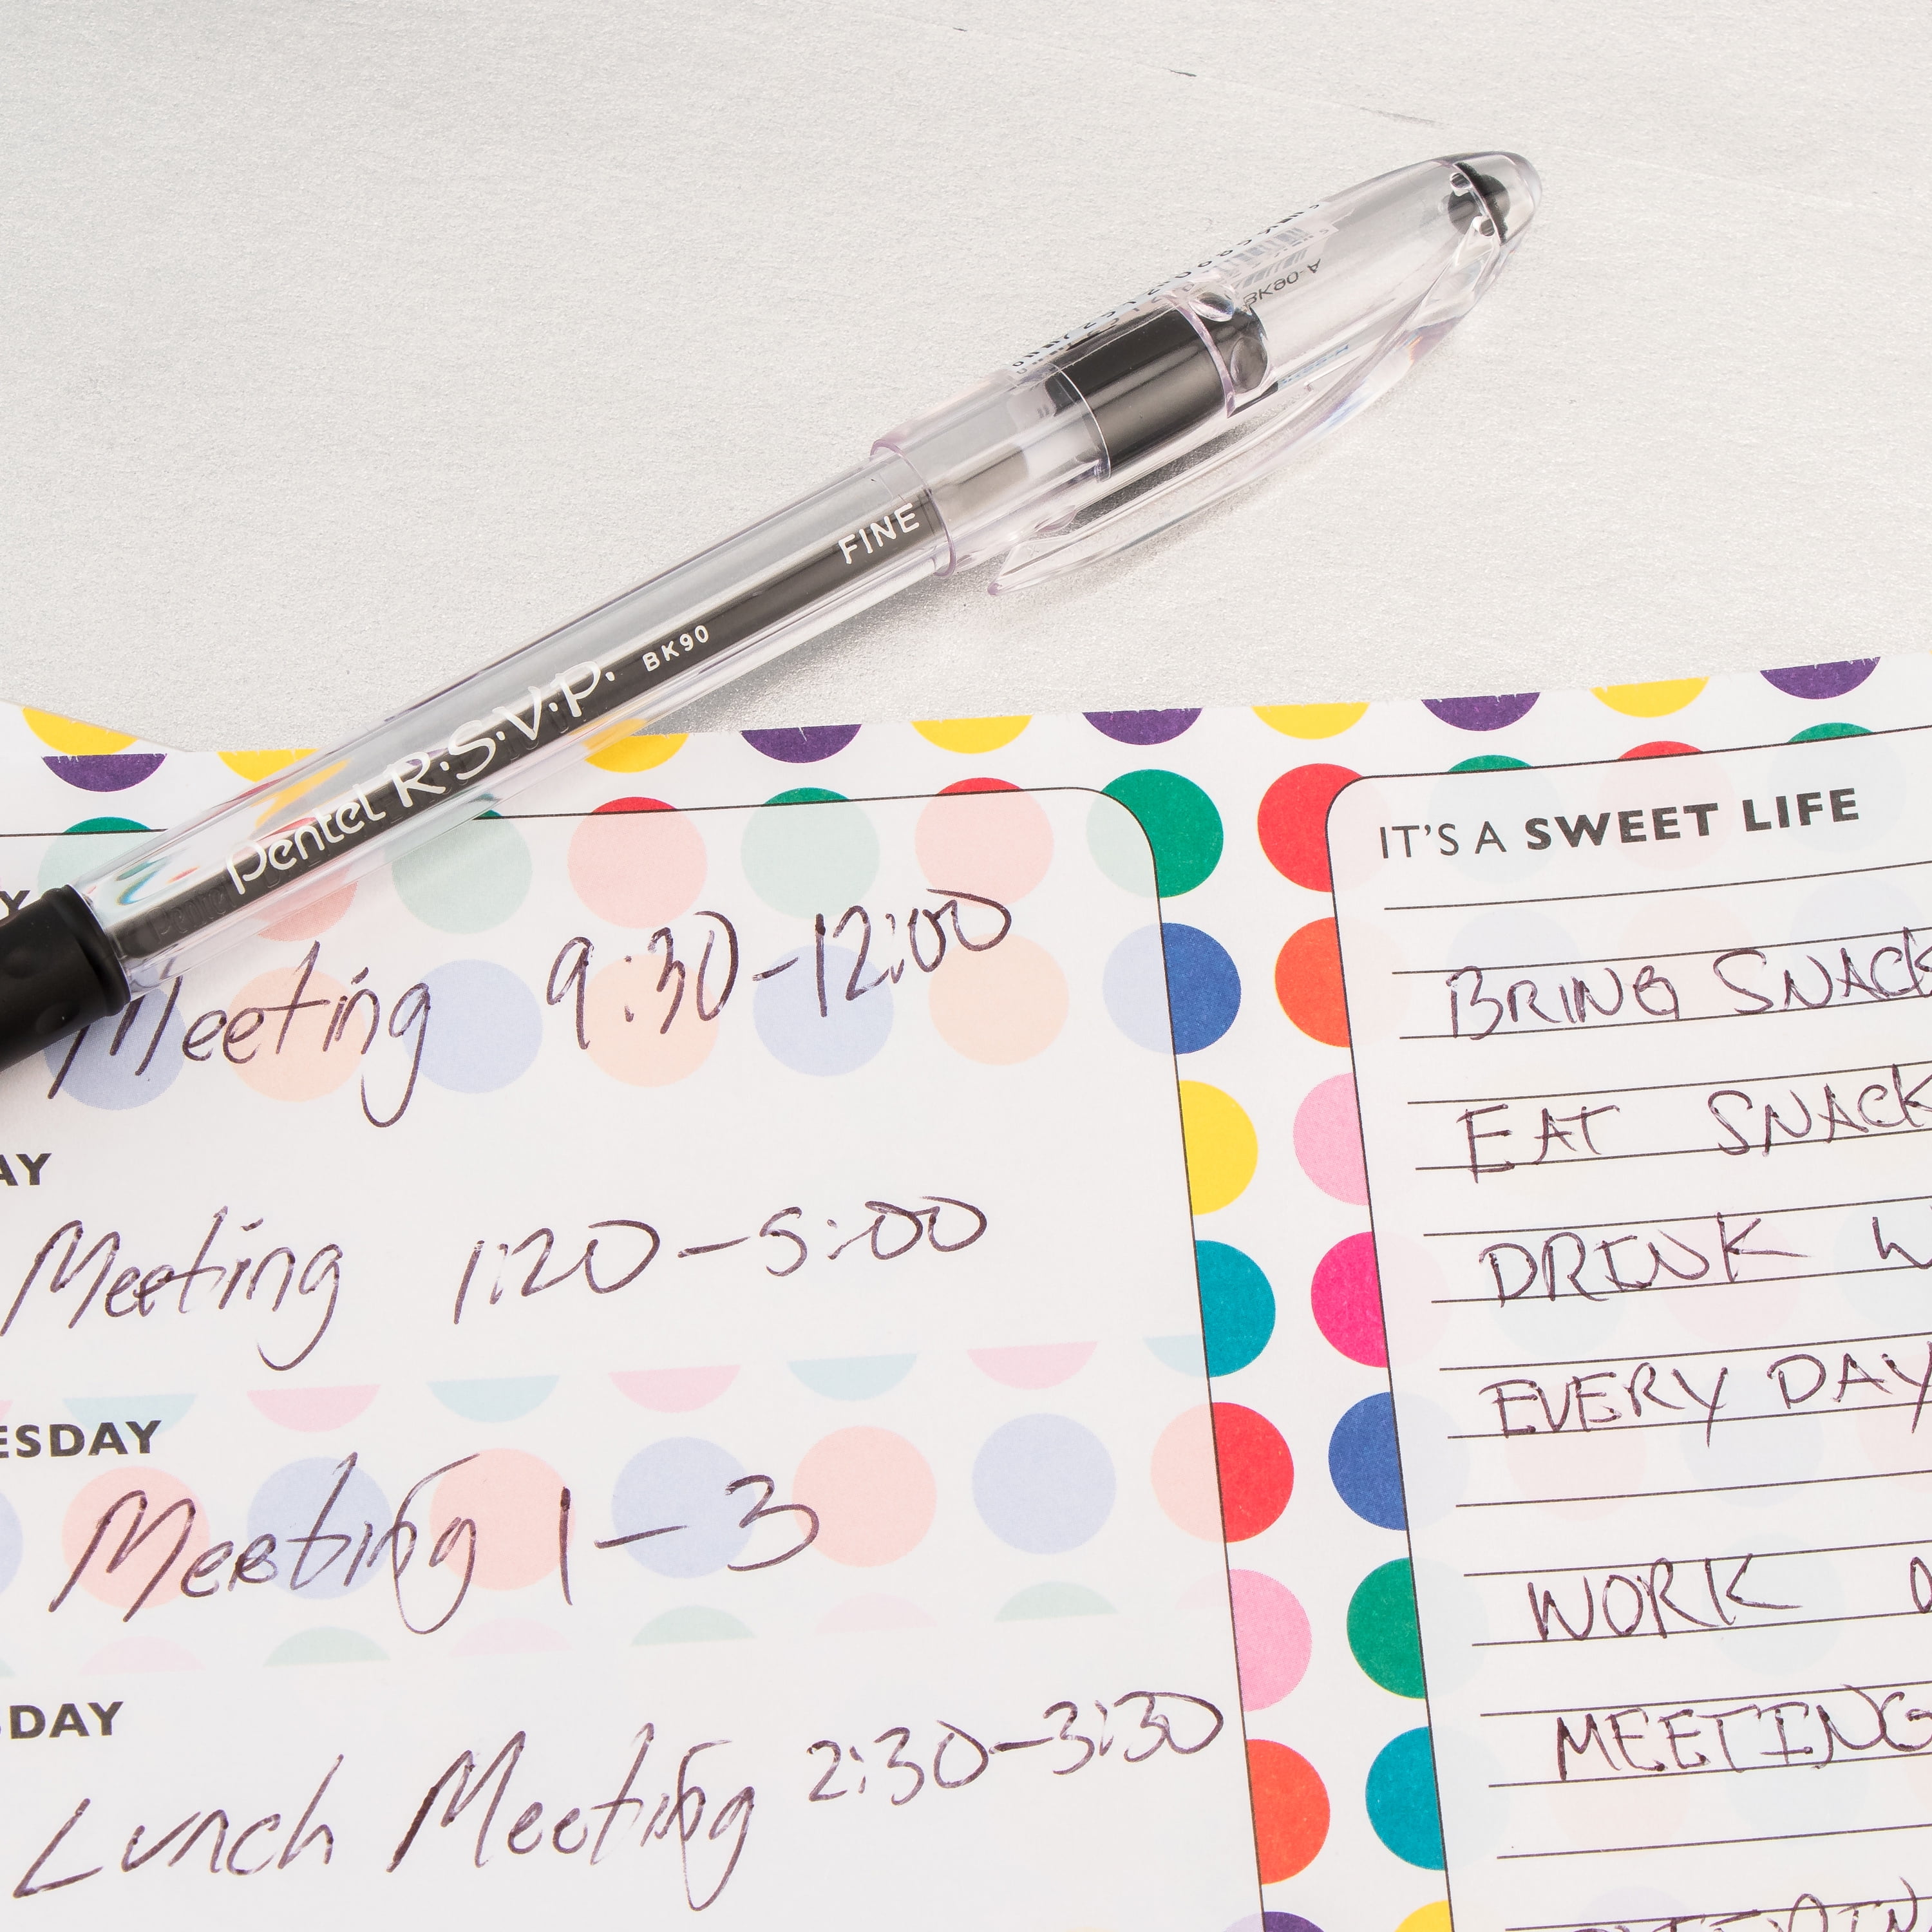 BK90-A
FINE
Pentel R.S.V.P. BK90
Meeting 9:30-12:00
AY
Meeting 1:20-5:00
ESDAY
Meeting 1-3
SDAY
Lunch Meeting 2:30-3:30
IT'S A SWEET LIFE
BRING SNACK
EAT SNACK
DRINK W
EVERY DAY
WORK
MEETING